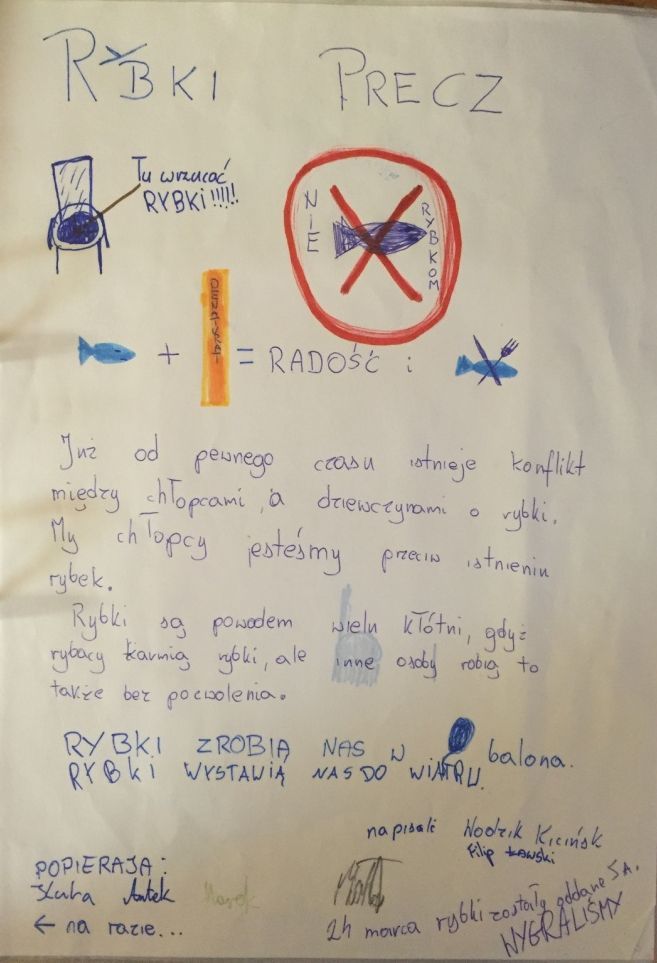 RYBKI PRECZ
Tu wrzucać
RYBKI!!!!!
NIE
RYBKOM
+ = RADOŚĆ i
Już od pewnego czasu istnieje konflikt
między chłopcami, a dziewczynami o rybki.
My chłopcy jesteśmy przeciw istnieniu
rybek.
Rybki są powodem wielu kłótni, gdyż
rybacy karmią rybki, ale inne osoby robią to
także bez pozwolenia.
RYBKI ZROBIĄ NAS W balona.
RYBKI WYSTAWIĄ NAS DO WIATRU.
napisali Kiciński
Filip
POPIERAJĄ:
Kuba Antek
← na razie...
24 marca rybki zostały oddane
WYGRALIŚMY